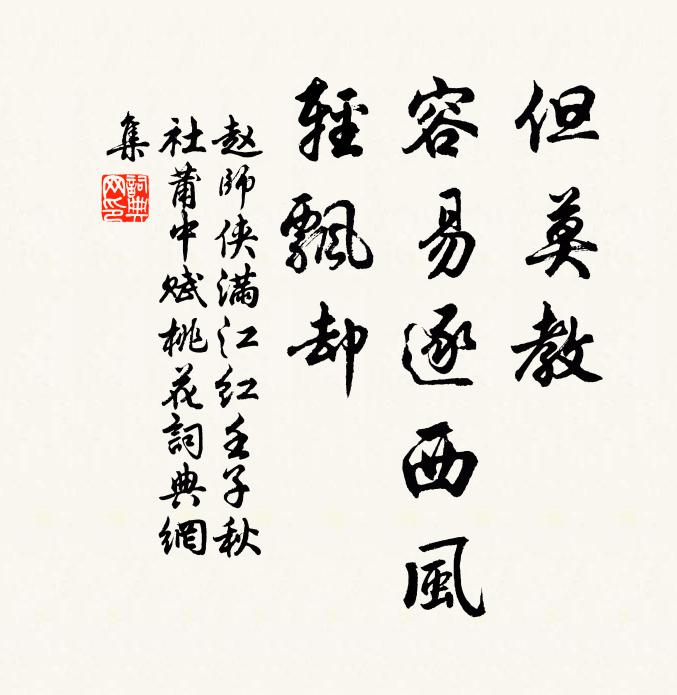 但莫教
容易逐西風
輕飄却
赵師侠滿江红壬子秋
社莆中赋桃花詞典網
集
詞典
网印